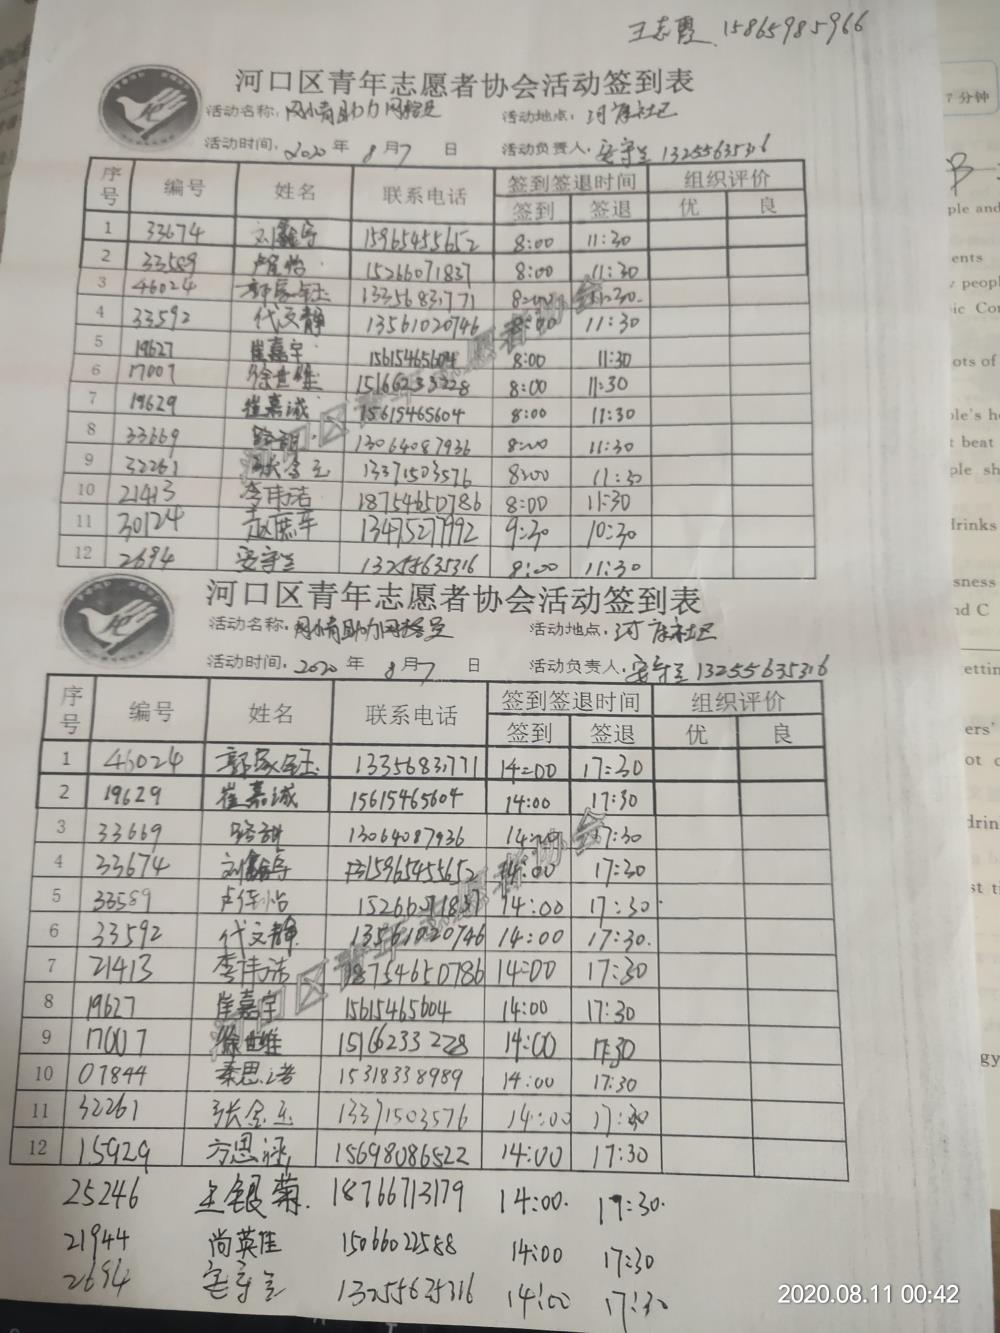 王志霞 15865985966
河口区青年志愿者协会活动签到表
活动名称: 网小青助力网格员 活动地点: 河库社区
活动时间: 2020 年 8 月 7 日 活动负责人: 安守兰 13255635316
序号 编号 姓名 联系电话 签到签退时间 组织评价
签到 签退 优 良
1 33674 刘鑫宇 15965455652 8:00 11:30
2 33589 卢佳怡 15266071837 8:00 11:30
3 46024 郭家钰 13356831771 8:00 11:30.
4 33592 代文静 13561020746 8:00 11:30
5 19627 崔嘉宇 15615465604 8:00 11:30
6 17007 徐世雄 15166233228 8:00 11:30
7 19629 崔嘉诚 15615465604 8:00 11:30
8 33669 路甜 13064087936 8:00 11:30
9 32261 张金玉 13371503576 8:00 11:30
10 21413 李伟洁 18754650786 8:00 11:30
11 30124 赵庶车 13475277992 9:30 10:30
12 2694 安守兰 13255635316 8:00 11:30
河口区青年志愿者协会活动签到表
活动名称: 网小青助力网格员 活动地点: 河库社区
活动时间: 2020 年 8 月 7 日 活动负责人: 安守兰 13255635316
序号 编号 姓名 联系电话 签到签退时间 组织评价
签到 签退 优 良
1 46024 郭家钰 13356831771 14:00 17:30
2 19629 崔嘉诚 15615465604 14:00 17:30
3 33669 路甜 13064087936 14:00 17:30
4 33674 刘鑫宇 15965455652 14:00 17:30
5 33589 卢佳怡 15266071837 14:00 17:30.
6 33592 代文静 13561020746 14:00 17:30.
7 21413 李伟洁 18754650786 14:00 17:30
8 19627 崔嘉宇 15615465604 14:00 17:30
9 17007 徐世雄 15166233228 14:00 17:30
10 07844 秦思诸 15318338989 14:00 17:30
11 32261 张金玉 13371503576 14:00 17:30
12 15929 方思涵 15698086522 14:00 17:30
25246 王银菊. 18766713179 14:00. 17:30.
21944 尚英佳 15066022588 14:00 17:30
2694 安守兰 13255635316 14:00 17:30
河口区青年志愿者协会
7 分钟
ple and
ents
peopl
ic Co
ots of
ple's h
t beat
ple sh
drinks
sness
nd C
ettin
ers'
ot
drin
st ti
gy
2020.08.11 00:42